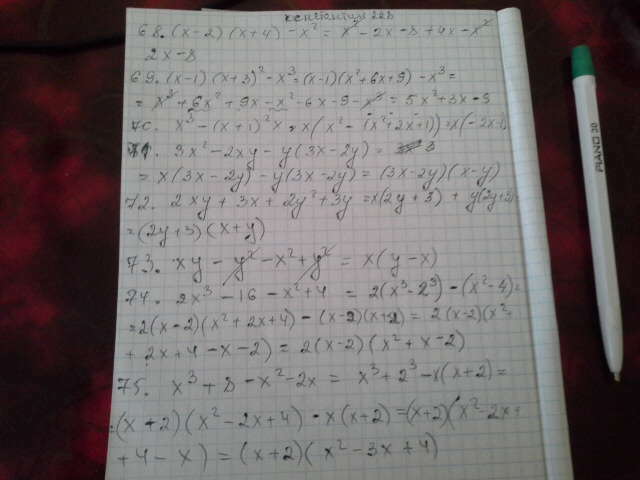 68. (x-2)(x+4) - x² = x² - 2x - 8 + 4x - x²
2x - 8
69. (x-1)(x+3)² - x³ = (x-1)(x²+6x+9) - x³ =
= x³ + 6x² + 9x - x² - 6x - 9 - x³ = 5x² + 3x - 9
70. x³ - (x+1)²x = x(x² - (x²+2x+1)) = x(-2x-1)
71. 3x² - 2xy - y(3x-2y) =
= x(3x-2y) - y(3x-2y) = (3x-2y)(x-y)
72. 2xy + 3x + 2y² + 3y = x(2y+3) + y(2y+3) =
= (2y+3)(x+y)
73. xy - y² - x² + y² = x(y-x)
74. 2x³ - 16 - x² + 4 = 2(x³-2³) - (x²-4) =
= 2(x-2)(x²+2x+4) - (x-2)(x+2) = 2(x-2)(x²
+ 2x + 4 - x - 2) = 2(x-2)(x²+x-2)
75. x³ + 8 - x² - 2x = x³ + 2³ - x(x+2) =
= (x+2)(x²-2x+4) - x(x+2) = (x+2)(x²-2x+
+4-x) = (x+2)(x²-3x+4)
PIANO